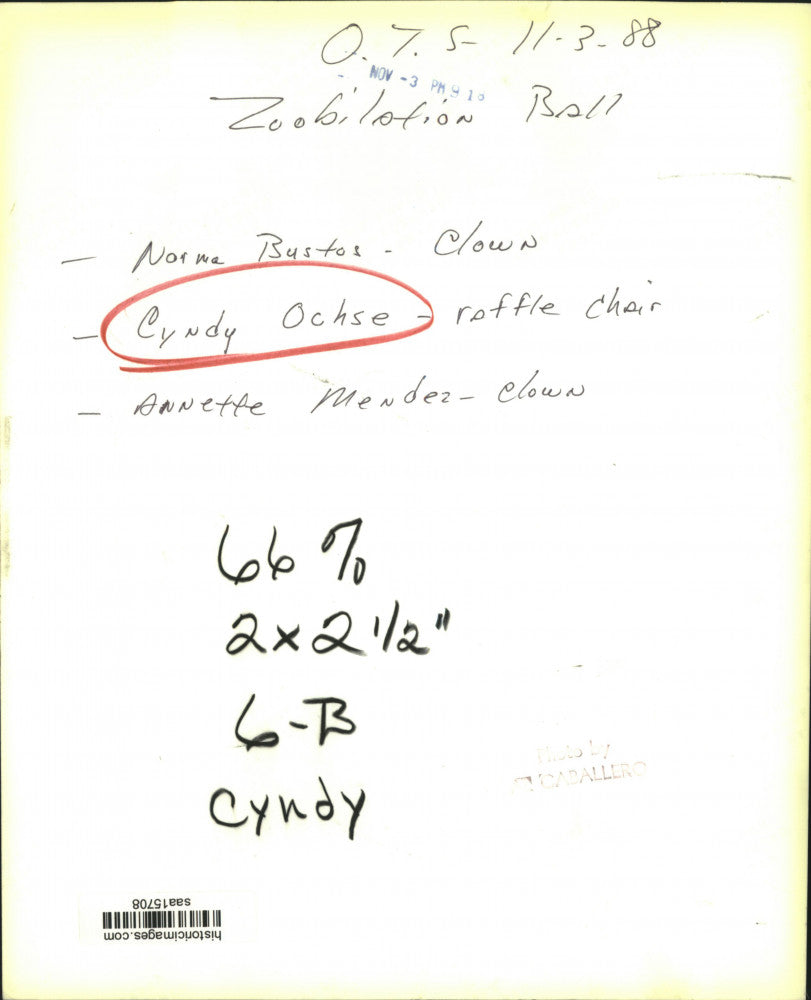 O.T.S 11-3-88
NOV -3 PM 9 10
Zoobilation Ball
- Norma Bustos - Clown
- Cyndy Ochse - raffle chair
- Annette Mendez - clown
66%
2x2 1/2"
6-B
Cyndy
Photo by
CABALLERO
saa15708
historicimages.com